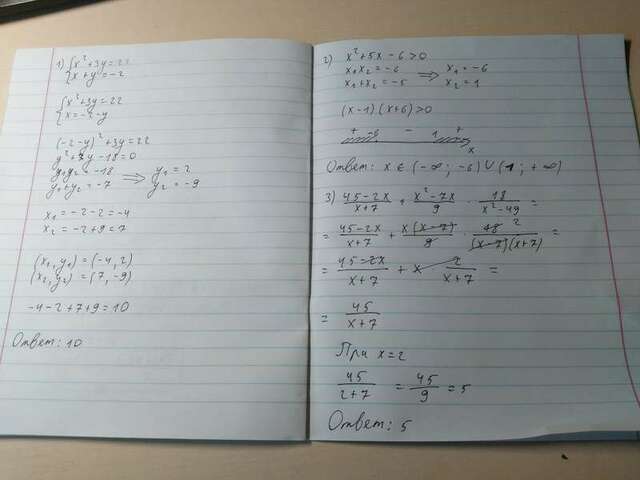 1) {x²+3y=22
{x+y=-2
{x²+3y=22
{x=-2-y
(-2-y)²+3y=22
y²+7y-18=0
y₁y₂=-18
y₁+y₂=-7 ⇒ y₁=2
y₂=-9
x₁=-2-2=-4
x₂=-2+9=7
(x₁,y₁)=(-4,2)
(x₂,y₂)=(7,-9)
-4-2+7+9=10
Ответ: 10
2) x²+5x-6>0
x₁x₂=-6
x₁+x₂=-5 ⇒ x₁=-6
x₂=1
(x-1)(x+6)>0
+ - 1 +
x
Ответ: x∈(-∞; -6)∪(1; +∞)
3) (45-2x)/(x+7) + (x²-7x)/9 · 18/(x²-49) =
= (45-2x)/(x+7) + x(x-7)/9 · 18 2/((x-7)(x+7)) =
= (45-2x)/(x+7) + x 2/(x+7) =
= 45/(x+7)
При x=2
45/(2+7) = 45/9 = 5
Ответ: 5